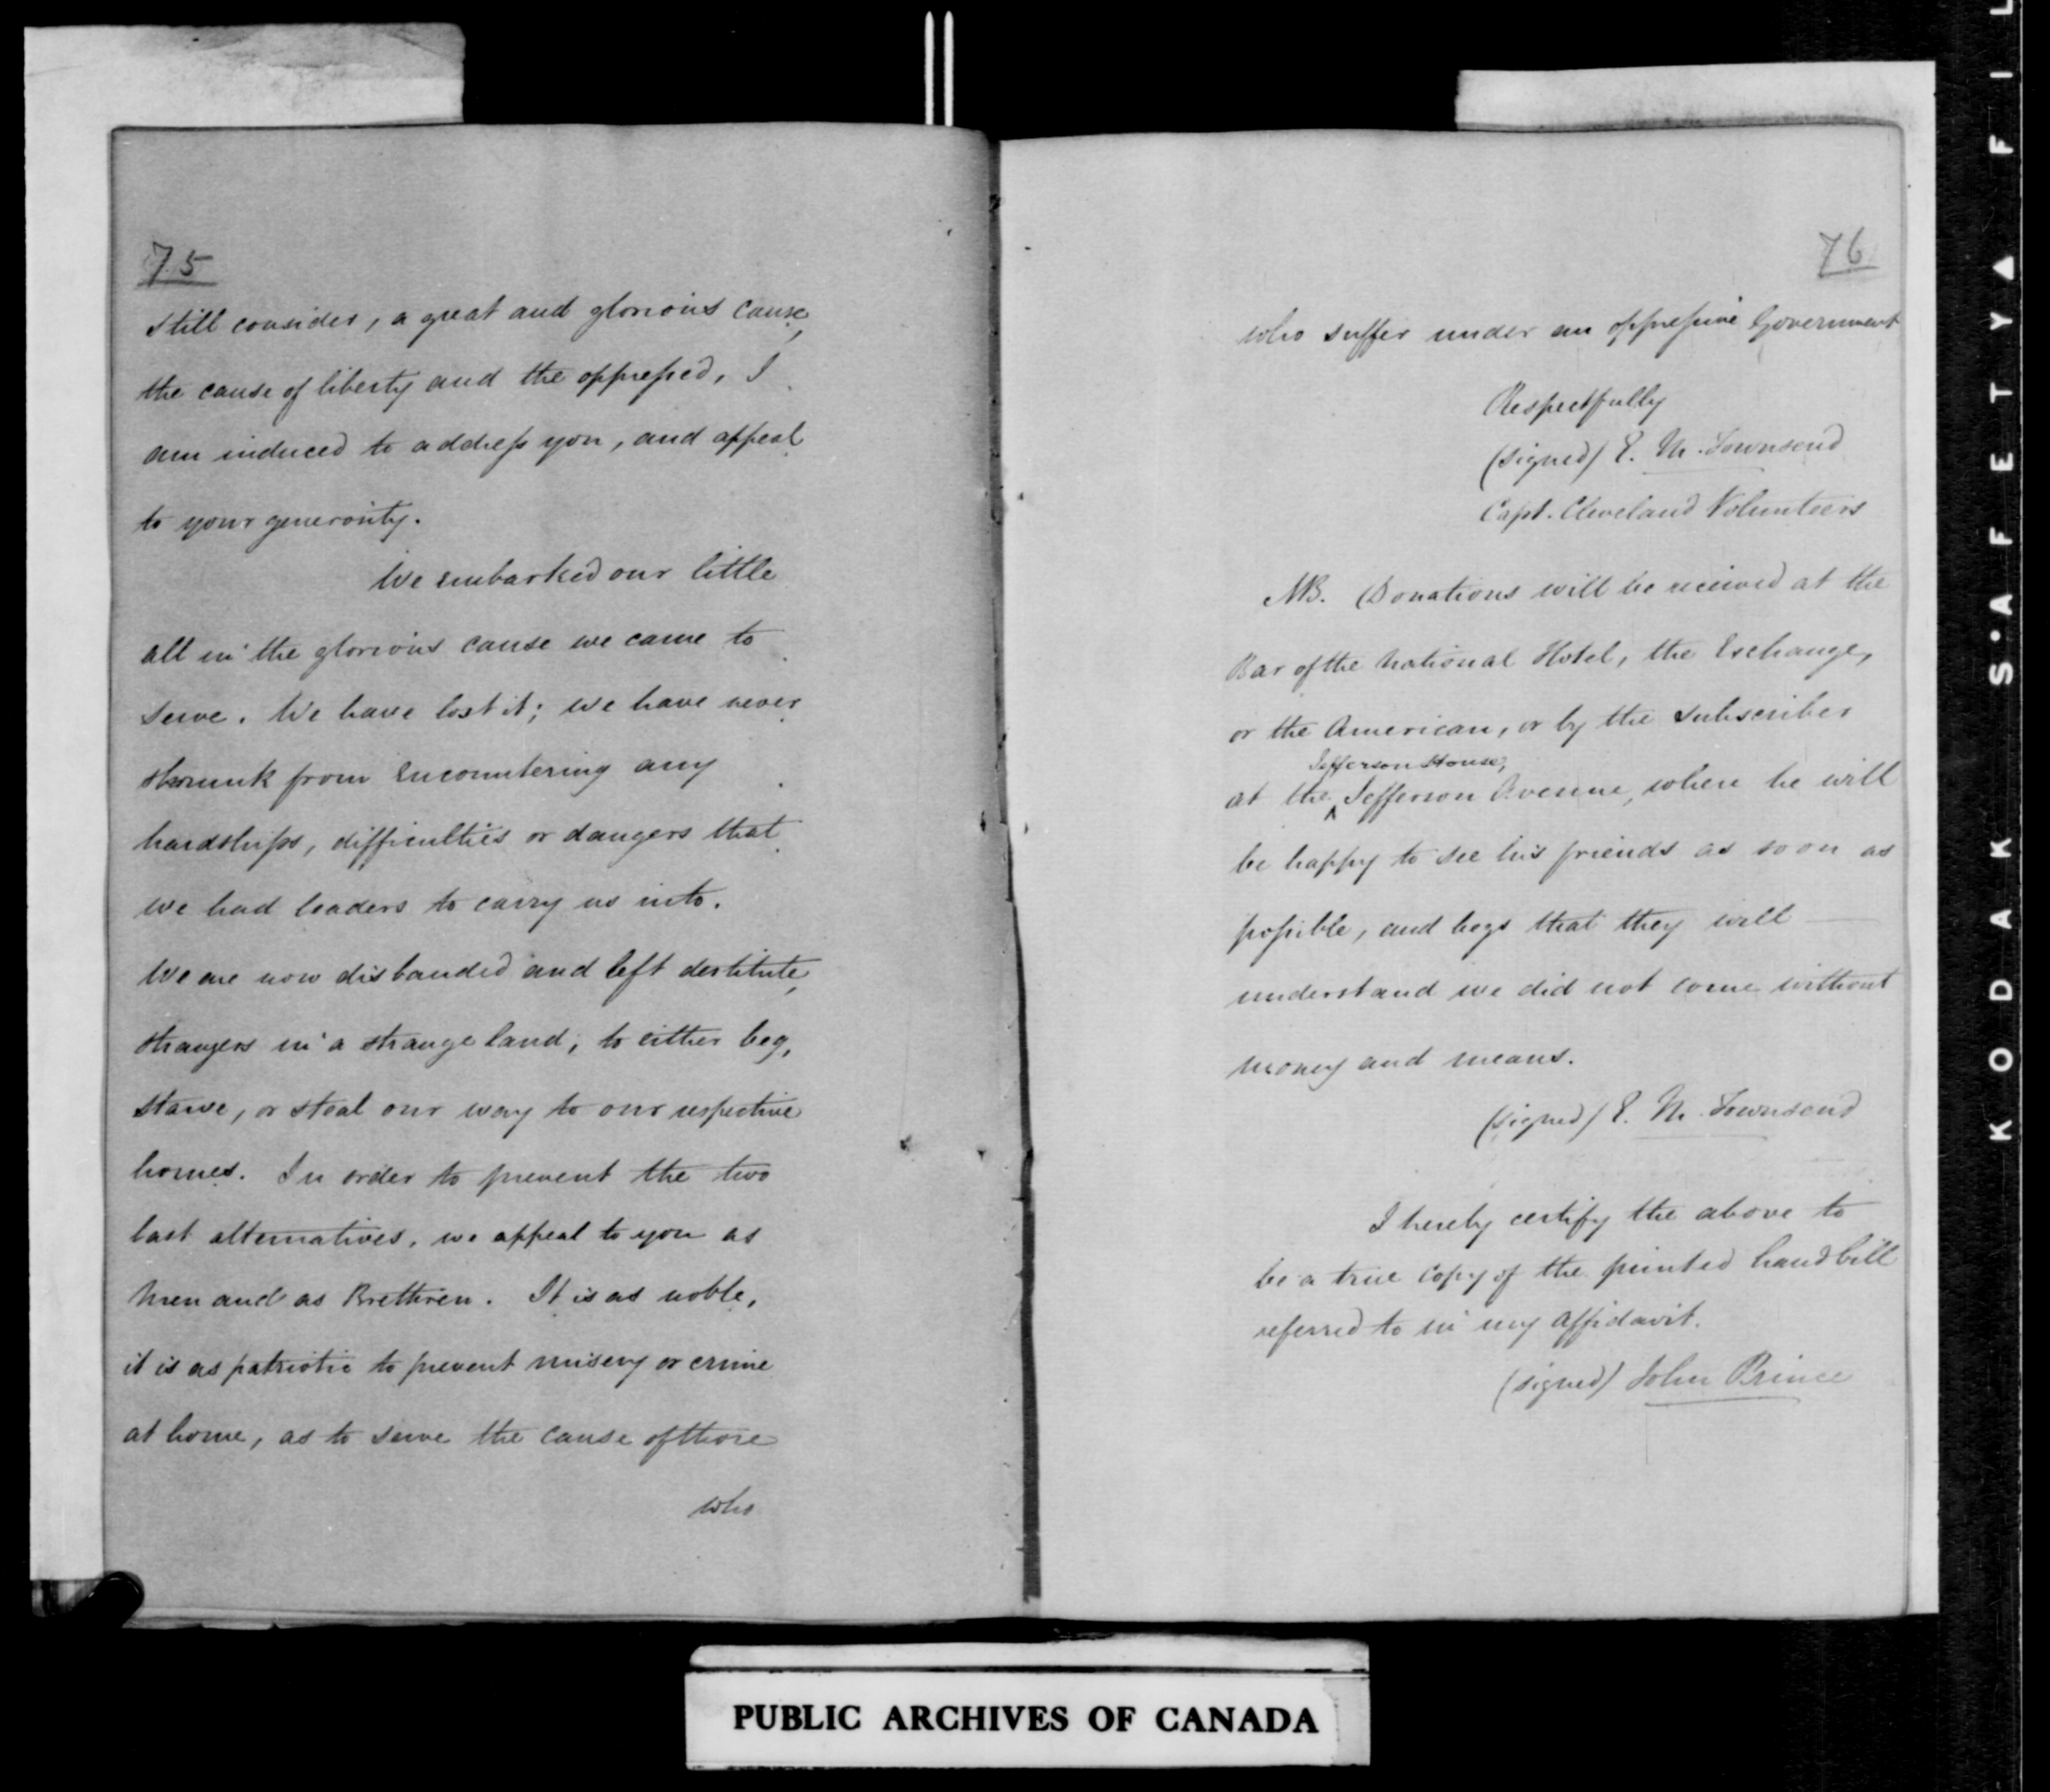 75
still consider, a great and glorious cause,
the cause of liberty and the oppressed, I
am induced to address you, and appeal
to your generosity.
We embarked our little
all in the glorious cause we came to
serve. We have lost it; we have never
shrunk from encountering any
hardships, difficulties or dangers that
we had leaders to carry us into.
We are now disbanded and left destitute,
strangers in a strange land, to either beg,
starve, or steal our way to our respective
homes. In order to prevent the two
last alternatives, we appeal to you as
Men and as Brethren. It is as noble,
it is as patriotic to prevent misery or crime
at home, as to serve the cause of those
who
76
who suffer under an oppressive Government
Respectfully
(signed) E. M. Townsend
Capt. Cleveland Volunteers
NB. Donations will be received at the
Bar of the National Hotel, the Exchange,
or the American, or by the subscriber
Jefferson House,
at the ^ Jefferson Avenue, where he will
be happy to see his friends as soon as
possible, and begs that they will
understand we did not come without
money and means.
(signed) E. M. Townsend
I hereby certify the above to
be a true copy of the printed handbill
referred to in my affidavit.
(signed) John Prince
PUBLIC ARCHIVES OF CANADA
KODAK S·AFETY▲FIL